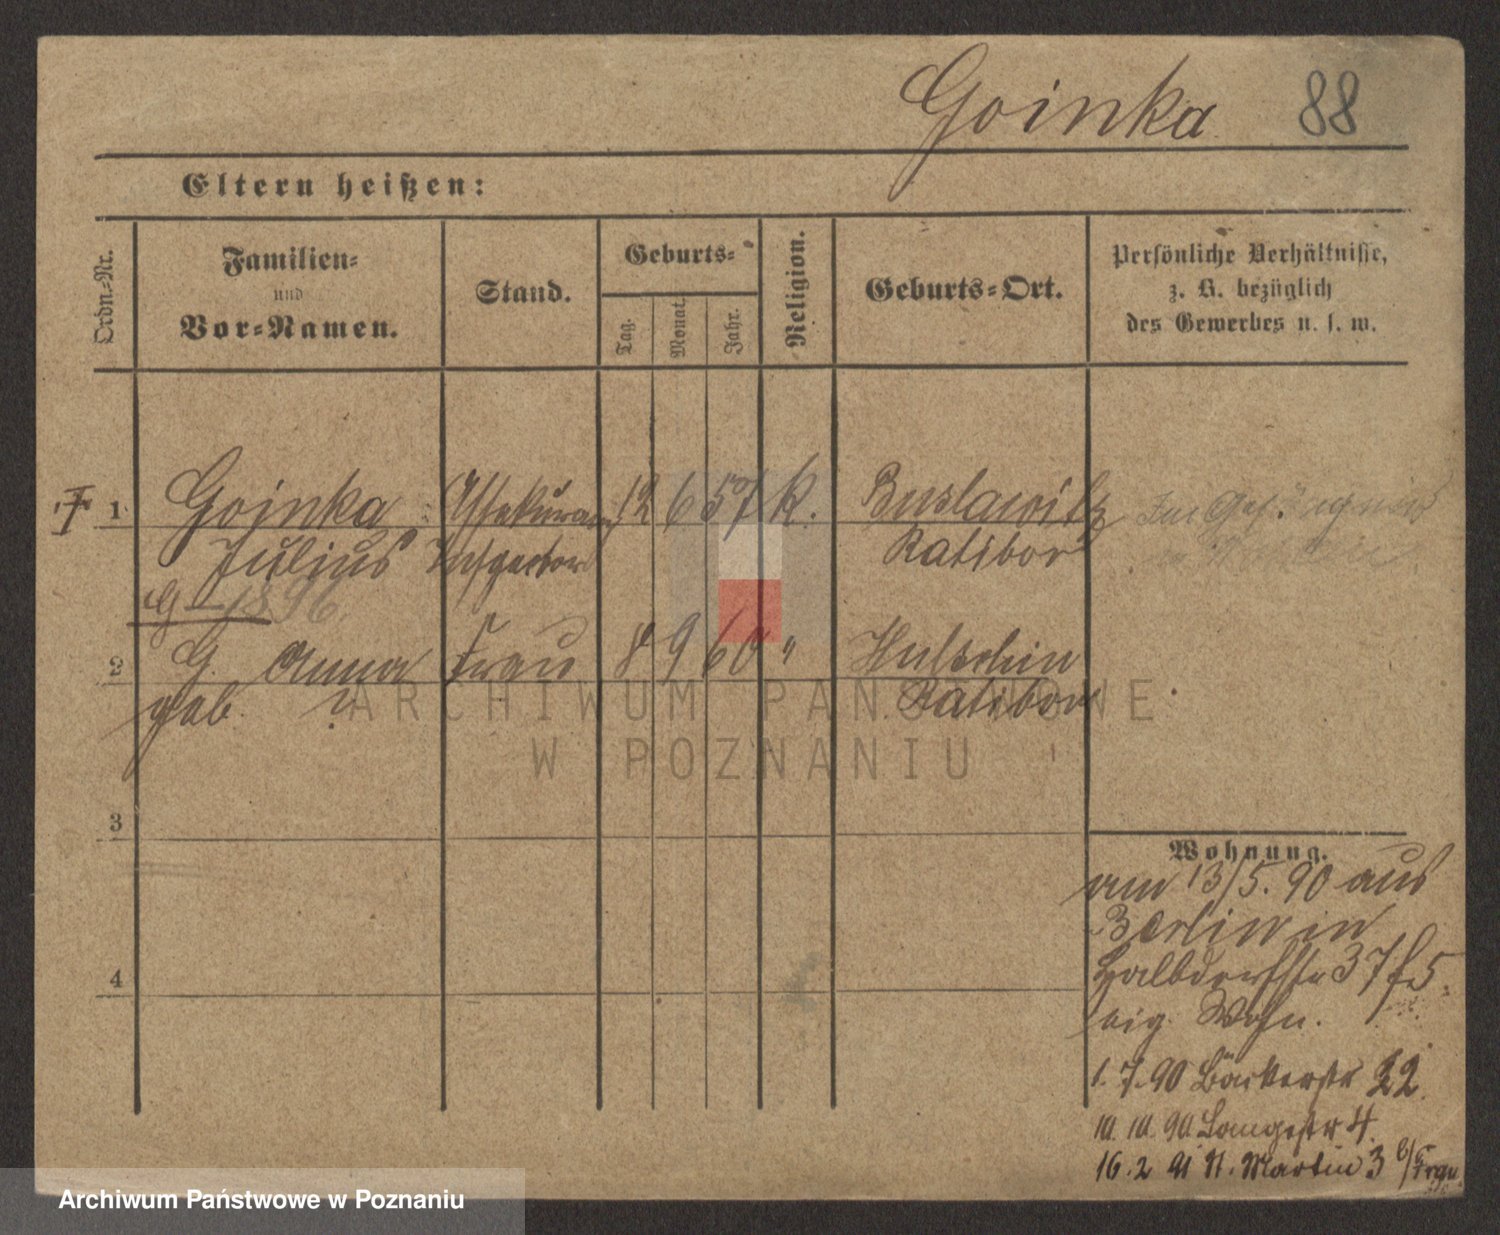 Goinka 88
Eltern heißen:
Ordn.-Nr.
Familien-
und
Vor-Namen.
Stand.
Geburts-
Tag. Monat. Jahr.
Religion.
Geburts-Ort.
Persönliche Verhältnisse,
z. B. bezüglich
des Gewerbes u. s. w.
1 Goinka Assekuranz 12 6 57 K. Buslawitz Im Gefängnis
Julius Inspector Ratibor
G - 1896
2 G. Anna Frau 8 9 60 " Hultschin
geb. ? Ratibor
3
4
Wohnung.
am 13/5. 90 aus
Berlin in
Halbdorfstr 37
eig. Wohn.
1. 7. 90 Bäckerstr 22.
10. 10. 90 Langestr 4.
16. 2 91 St. Martin 3 b/Frau
ARCHIWUM PAŃSTWOWE
W POZNANIU
Archiwum Państwowe w Poznaniu